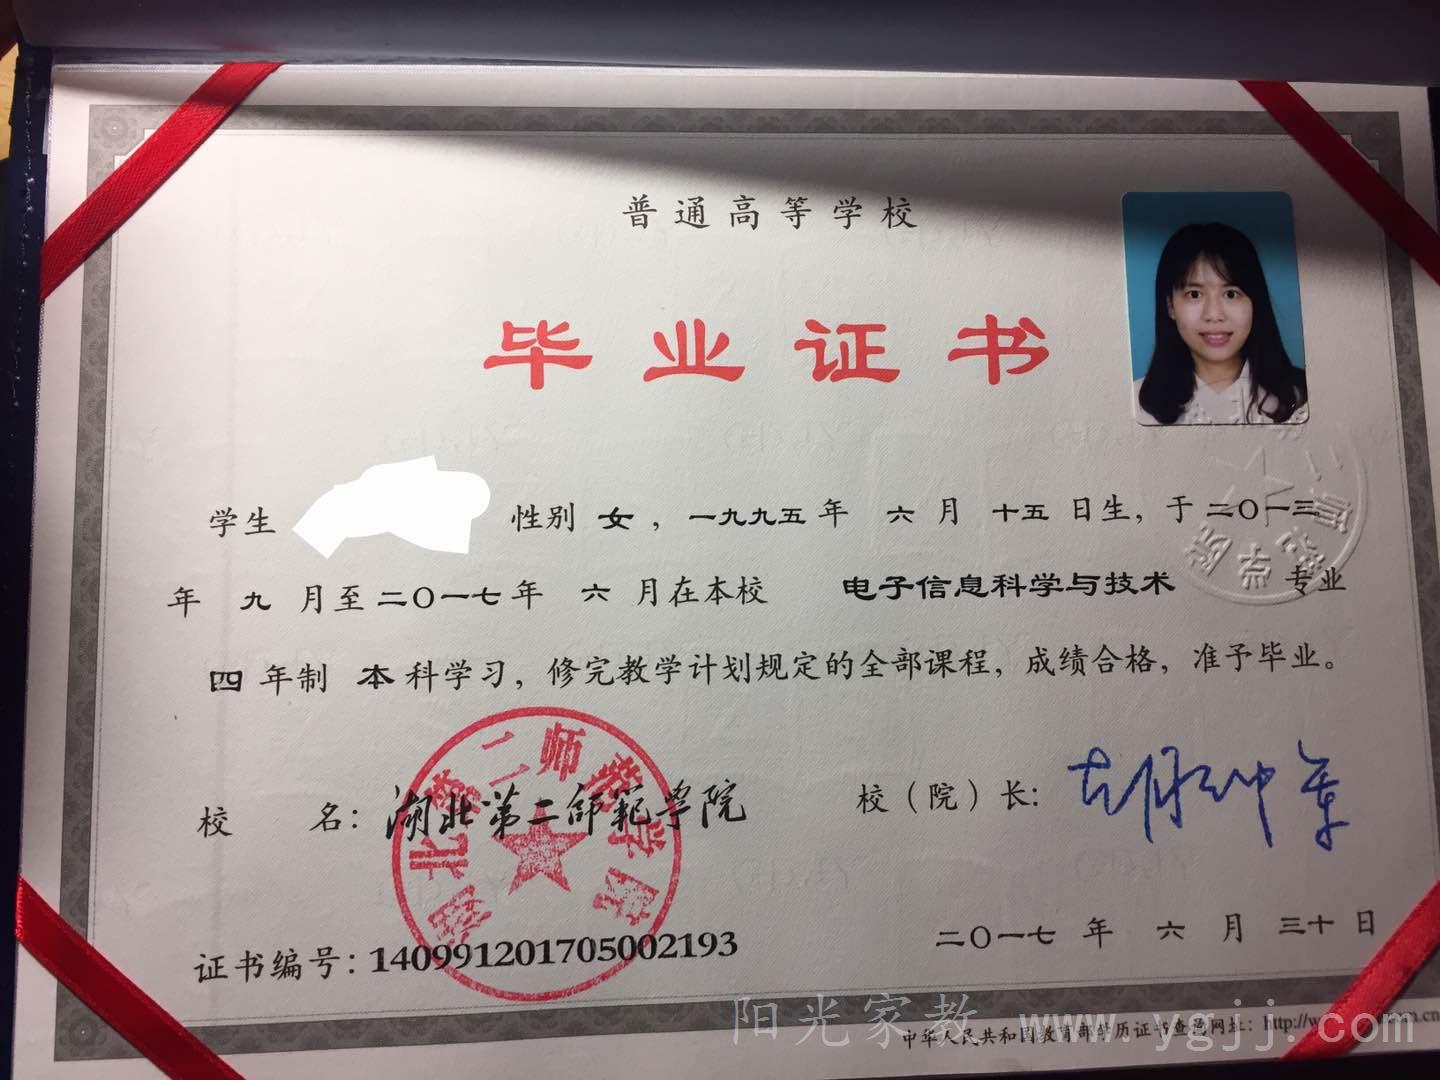 普通高等学校
毕业证书
学生 性别 女，一九九五年 六月 十五日生，于二〇一三
年 九 月至二〇一七年 六 月在本校 电子信息科学与技术 专业
四 年制 本科学习，修完教学计划规定的全部课程，成绩合格，准予毕业。
校 名：湖北第二师范学院 校（院）长：
湖北第二师范学院
证书编号：140991201705002193 二〇一七 年 六 月 三十 日
中华人民共和国教育部学历证书查询网址：http://w
阳光家教 www.ygjj.com